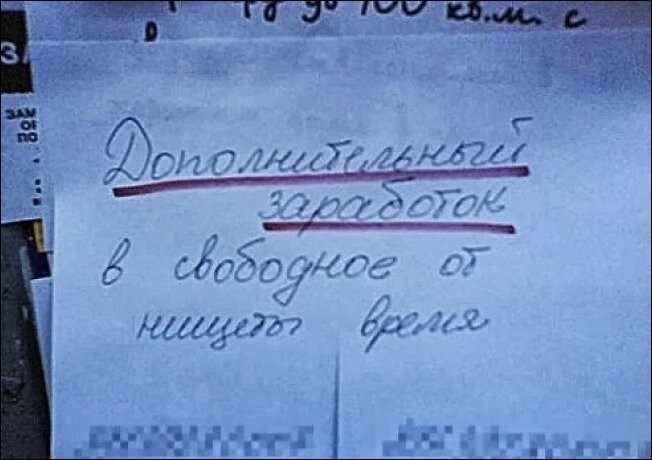 до 100 кв.м. с
ЗАМ
Дополнительный
заработок
в свободное от
нищеты время